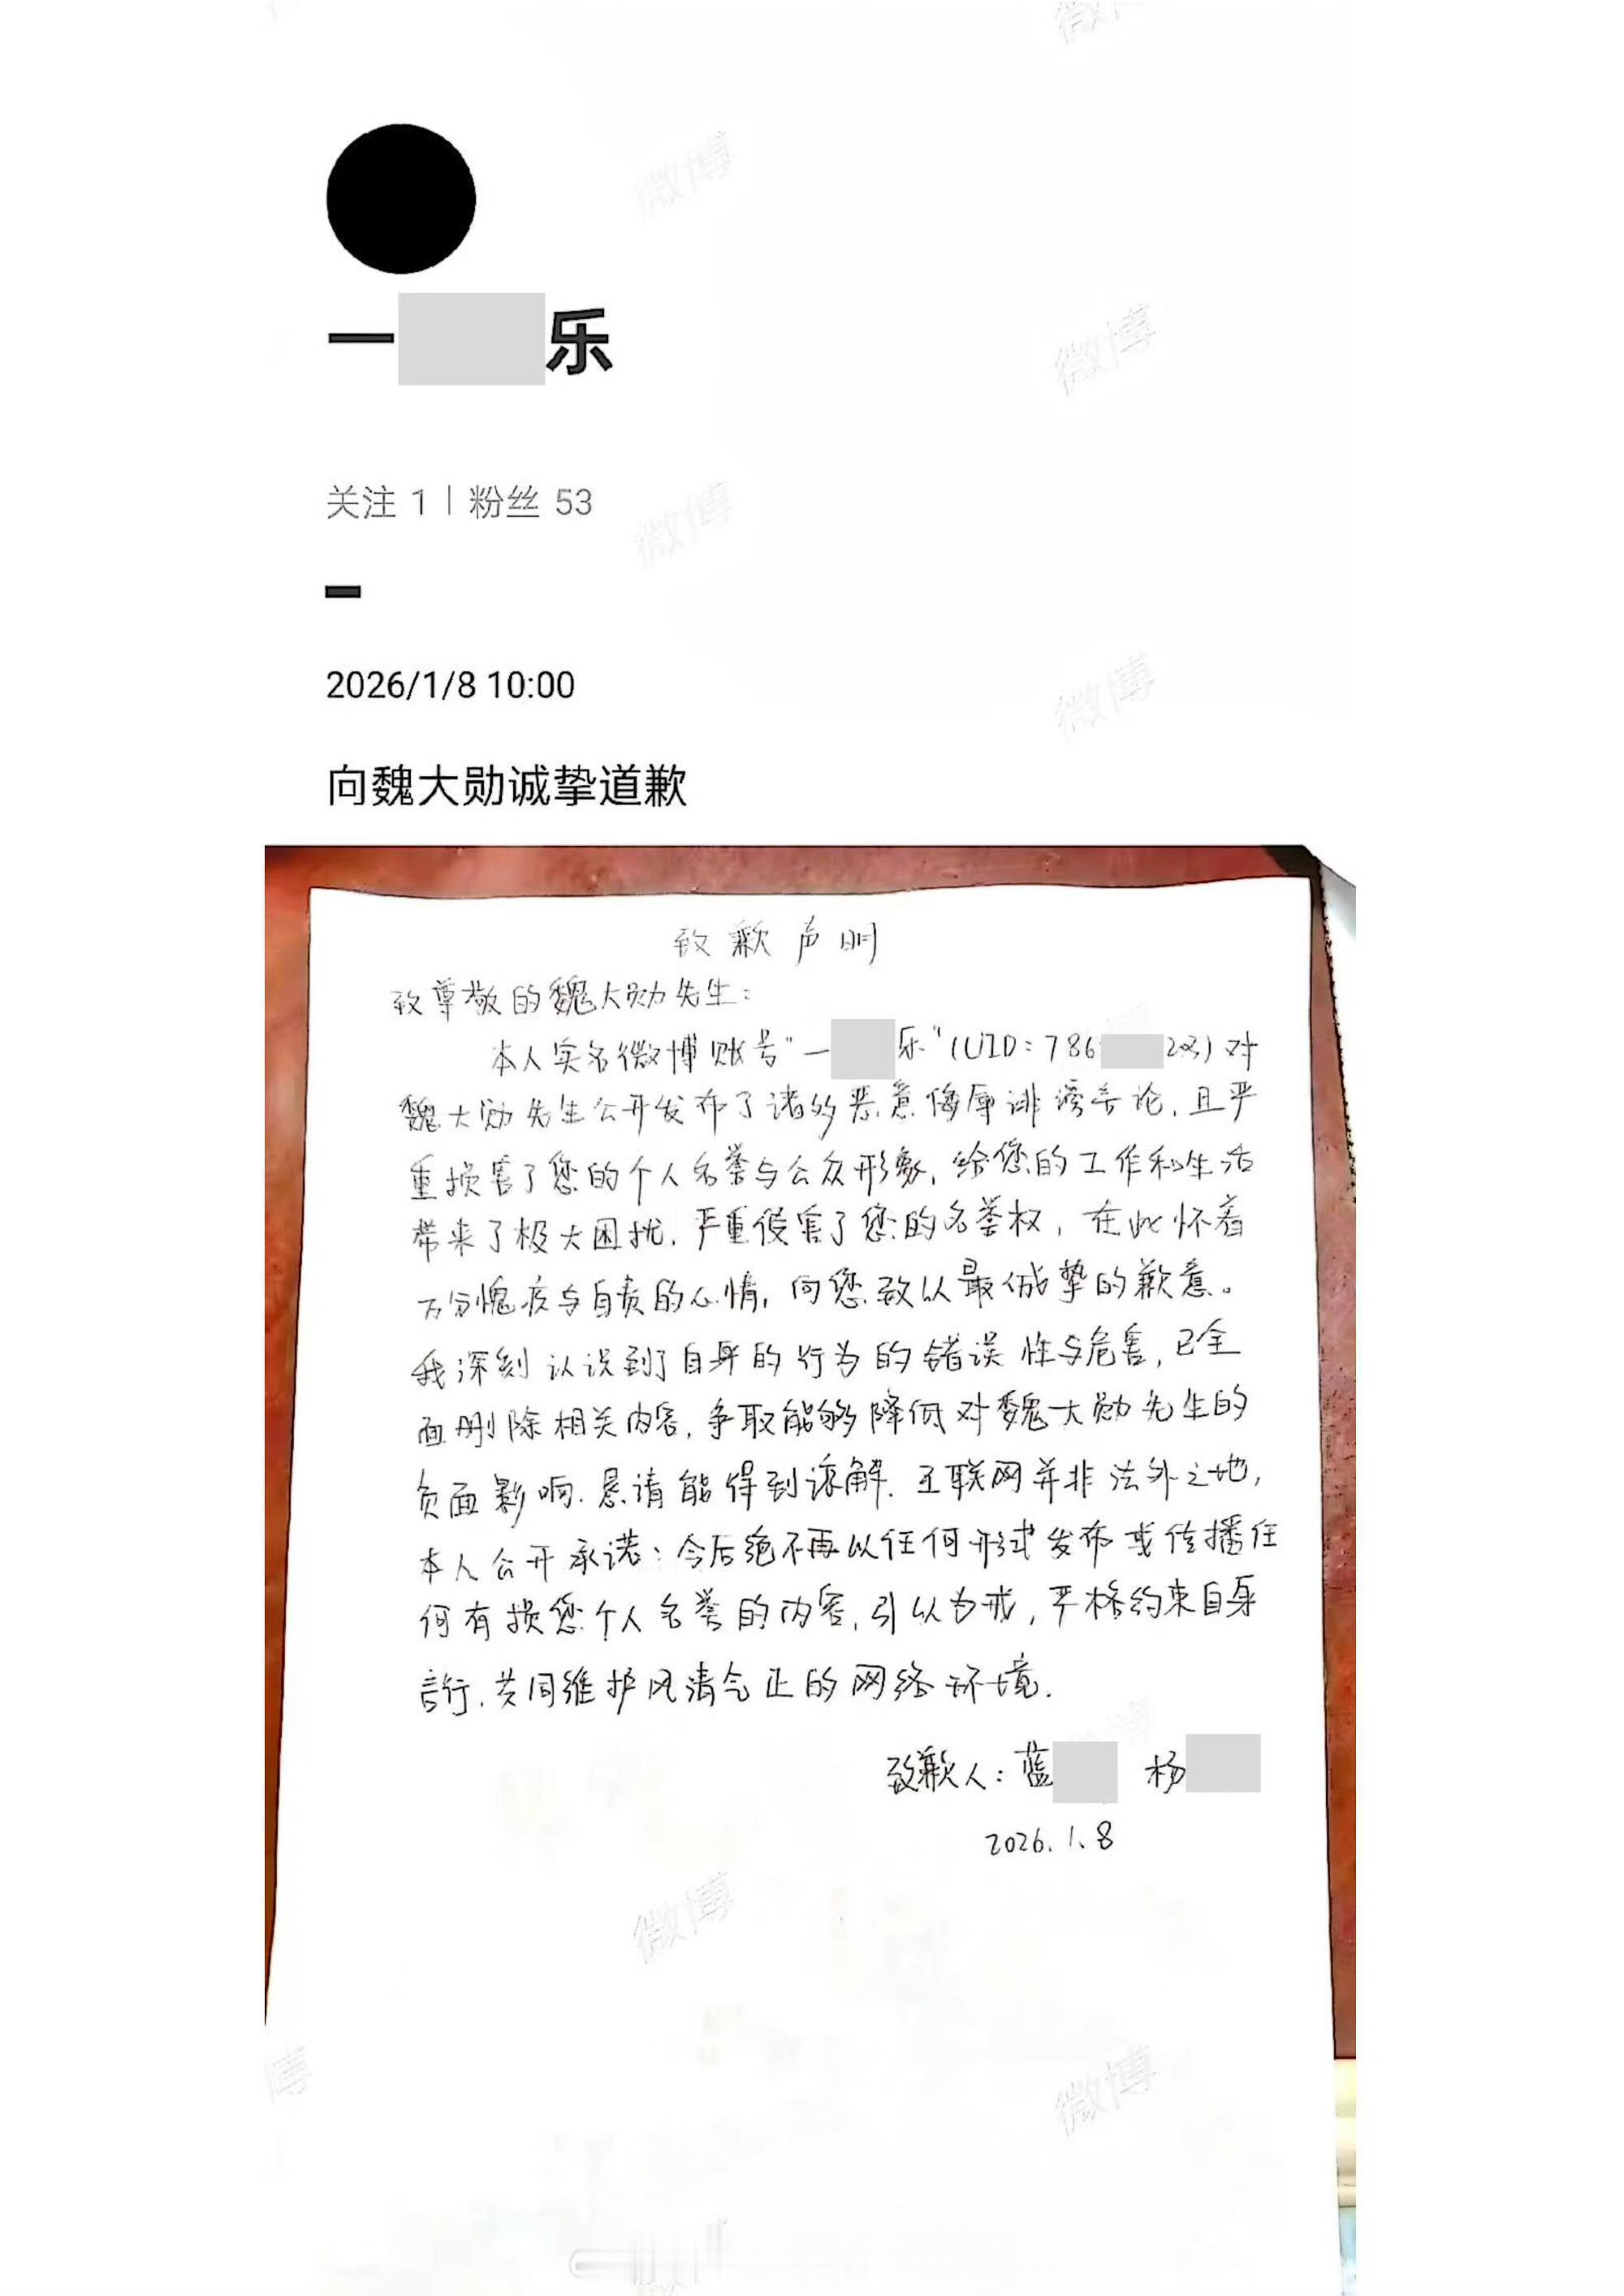 一 乐
关注 1 | 粉丝 53
2026/1/8 10:00
向魏大勋诚挚道歉
致歉声明
致尊敬的魏大勋先生：
本人实名微博账号"一 乐"(UID：786 23)对
魏大勋先生公开发布了诸多恶意侮辱诽谤言论，且严
重损害了您的个人名誉与公众形象，给您的工作和生活
带来了极大困扰，严重侵害了您的名誉权，在此怀着
万分愧疚与自责的心情，向您致以最诚挚的歉意。
我深刻认识到了自身的行为的错误性与危害，已全
面删除相关内容，争取能够降低对魏大勋先生的
负面影响.恳请能得到谅解.互联网并非法外之地，
本人公开承诺：今后绝不再以任何形式发布或传播任
何有损您个人名誉的内容，引以为戒，严格约束自身
言行.共同维护风清气正的网络环境.
致歉人：蓝 杨
2026.1.8
微博
微博
微博
微博
微博
微博
微博
微博